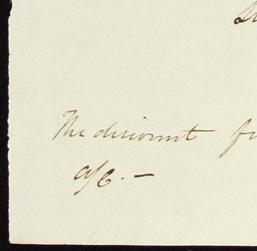 The discount
a/c. —